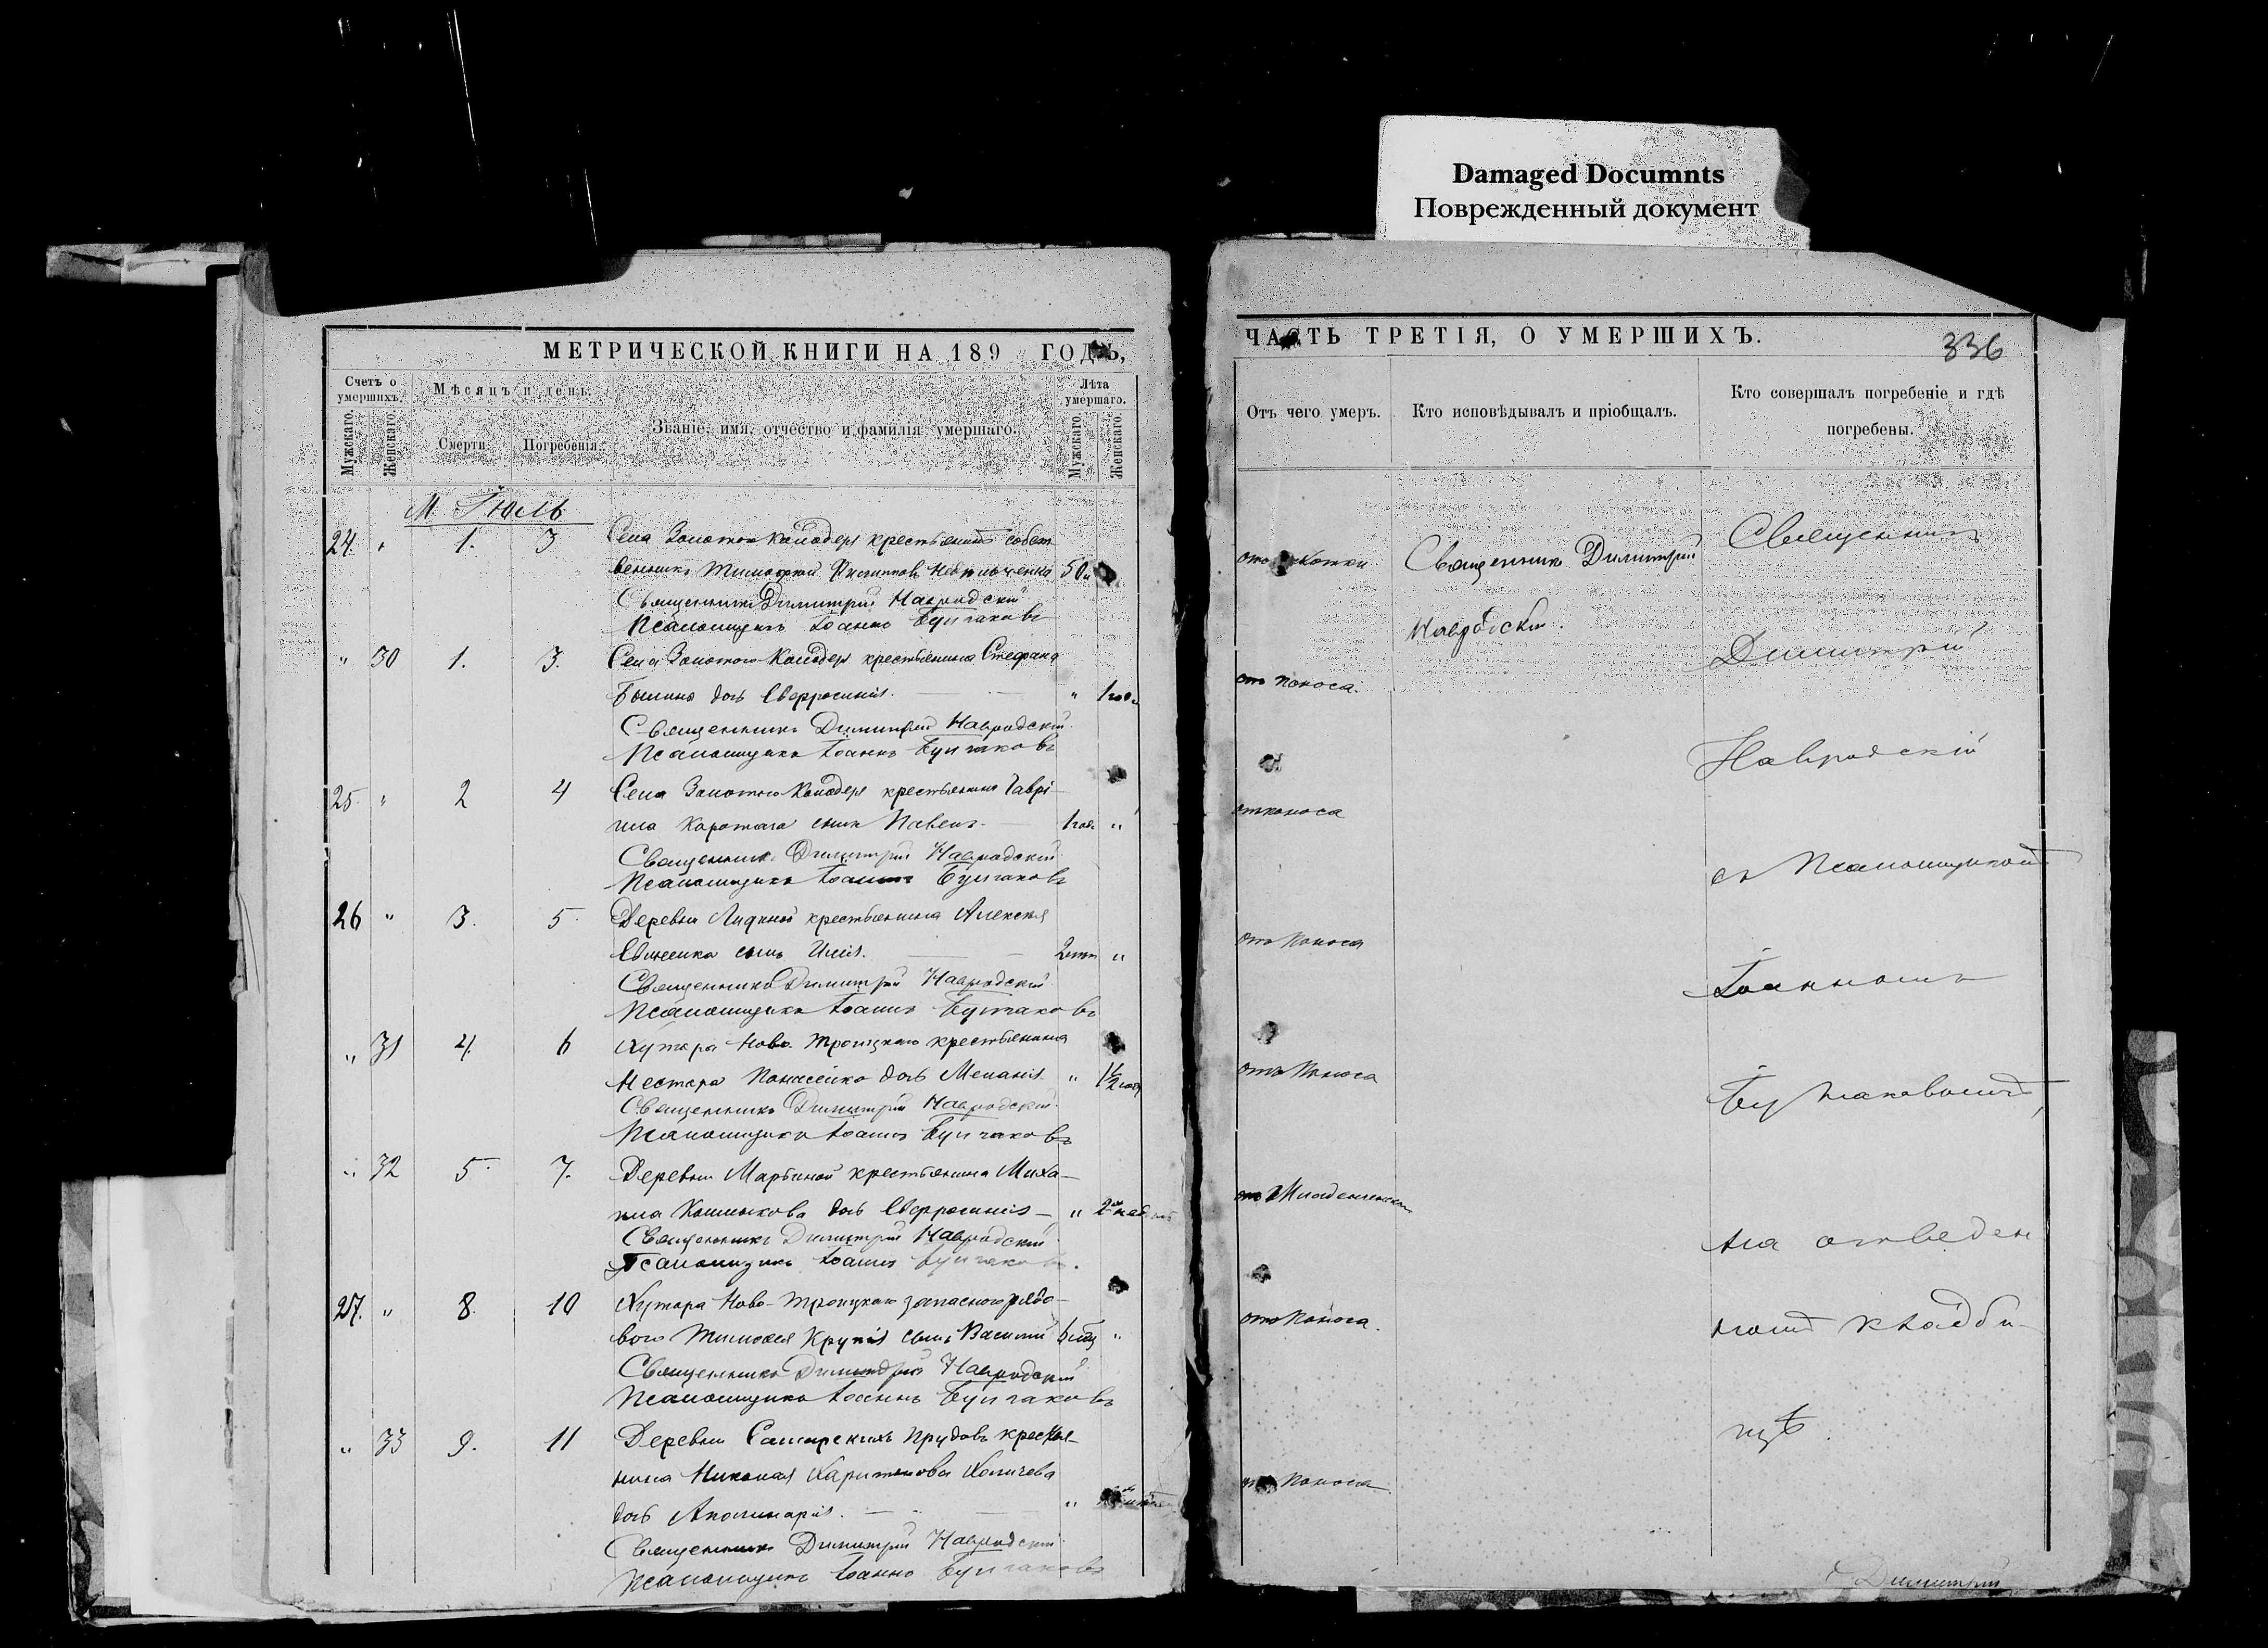 Damaged Documnts
Поврежденный документ
МЕТРИЧЕСКОЙ КНИГИ НА 189 ГОДЪ,
Счетъ о умершихъ.
Мѣсяцъ и день.
Званіе, имя, отчество и фамилія умершаго.
Лѣта умершаго.
Мужскаго.
Женскаго.
Смерти.
Погребенія.
Мужскаго.
Женскаго.
М. Іюль
24. " 1. 3 Села Золотой Колодезь крестьянинъ собст
венникъ Тимофей Филиппов 50
Священникъ Димитрій Навродскій
Псаломщикъ Іоаннъ Булгаковъ
" 30 1. 3. Села Золотого Колодезя крестьянина Стефана
дочь Евфросинія. " 1 годъ
Священникъ Димитрій Навродскій
Псаломщикъ Іоаннъ Булгаковъ
25. " 2 4 Села Золотого Колодезя крестьянина Гаврі-
ила Короткаго сынъ Павелъ. 1 годъ "
Священникъ Димитрій Навродскій
Псаломщикъ Іоаннъ Булгаковъ
26 " 3. 5. Деревни крестьянина Алексѣя
сынъ Илія. 2 лѣтъ "
Священникъ Димитрій Навродскій
Псаломщикъ Іоаннъ Булгаковъ
" 31 4. 6 Хутора Ново-Троицкаго крестьянина
Нестора дочь Меланія. " 1½ года
Священникъ Димитрій Навродскій
Псаломщикъ Іоаннъ Булгаковъ
" 32 5. 7. Деревни Марьиной крестьянина Миха-
ила дочь Евфросинія — " 2
Священникъ Димитрій Навродскій
Псаломщикъ Іоаннъ Булгаковъ.
27. " 8. 10 Хутора Ново-Троицкаго запаснаго рядо-
вого Тимофея сынъ Василій "
Священникъ Димитрій Навродскій
Псаломщикъ Іоаннъ Булгаковъ
" 33 9. 11 Деревни Самарскихъ Прудовъ крестья-
нина Николая Харитонова
дочь Аполинарія. "
Священникъ Димитрій Навродскій
Псаломщикъ Іоаннъ Булгаковъ
ЧАСТЬ ТРЕТІЯ, О УМЕРШИХЪ.
336
Отъ чего умеръ.
Кто исповѣдывалъ и пріобщалъ.
Кто совершалъ погребеніе и гдѣ погребены.
отъ
отъ поноса.
отъ поноса
отъ поноса
отъ поноса
отъ
отъ поноса.
отъ поноса.
Священникъ Димитрій
Навродскій.
Священникъ
Димитрій
Навродскій
съ Псаломщикомъ
Іоанномъ
Булгаковымъ,
на отведен
номъ кладби-
щѣ.
Димитрій